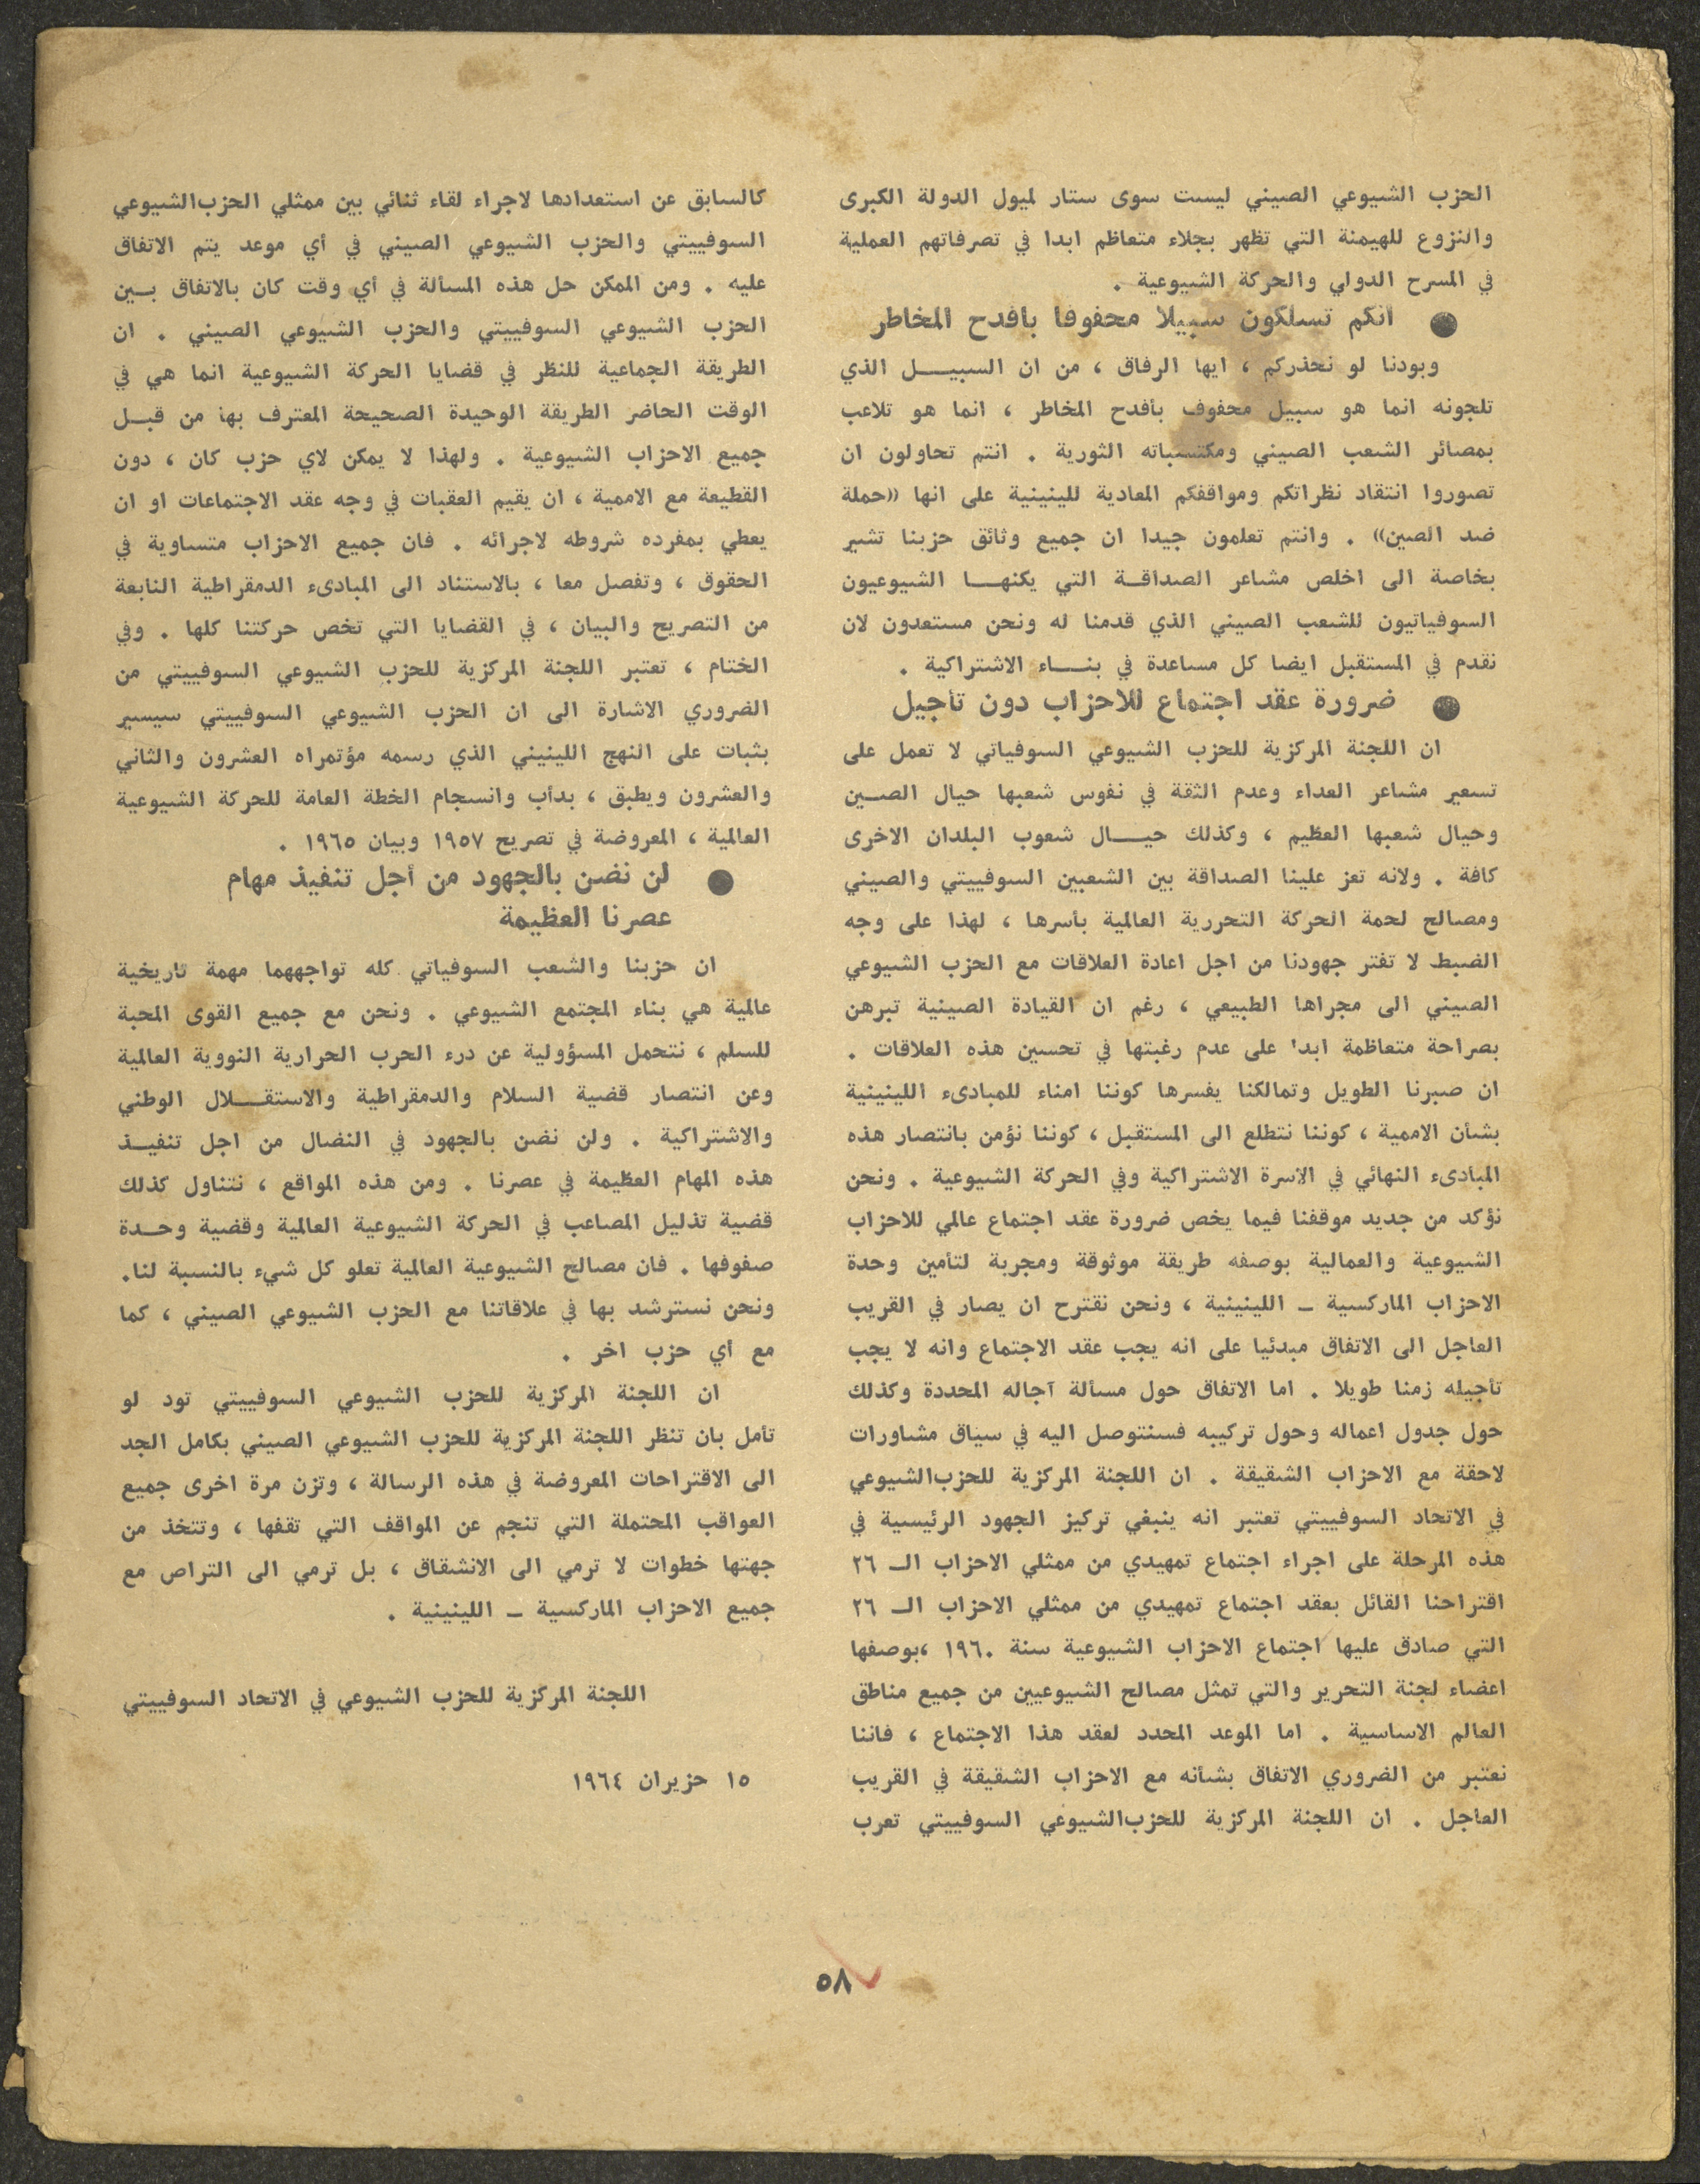 الحزب الشيوعي الصيني ليست سوى ستار لميول الدولة الكبرى
والنزوع للهيمنة التي تظهر بجلاء متعاظم ابدا في تصرفاتهم العملية
في المسرح الدولي والحركة الشيوعية .
● انكم تسلكون سبيلا محفوفا بافدح المخاطر
وبودنا لو نحذركم ، ايها الرفاق ، من ان السبيل الذي
تلجونه انما هو سبيل محفوف بأفدح المخاطر ، انما هو تلاعب
بمصائر الشعب الصيني ومكتسباته الثورية . انتم تحاولون ان
تصوروا انتقاد نظراتكم ومواقفكم المعادية للينينية على انها «حملة
ضد الصين» . وانتم تعلمون جيدا ان جميع وثائق حزبنا تشير
بخاصة الى اخلص مشاعر الصداقة التي يكنها الشيوعيون
السوفياتيون للشعب الصيني الذي قدمنا له ونحن مستعدون لان
نقدم في المستقبل ايضا كل مساعدة في بناء الاشتراكية .
● ضرورة عقد اجتماع للاحزاب دون تأجيل
ان اللجنة المركزية للحزب الشيوعي السوفياتي لا تعمل على
تسعير مشاعر العداء وعدم الثقة في نفوس شعبها حيال الصين
وحيال شعبها العظيم ، وكذلك حيال شعوب البلدان الاخرى
كافة . ولانه تعز علينا الصداقة بين الشعبين السوفييتي والصيني
ومصالح لحمة الحركة التحررية العالمية بأسرها ، لهذا على وجه
الضبط لا تفتر جهودنا من اجل اعادة العلاقات مع الحزب الشيوعي
الصيني الى مجراها الطبيعي ، رغم ان القيادة الصينية تبرهن
بصراحة متعاظمة ابدا على عدم رغبتها في تحسين هذه العلاقات .
ان صبرنا الطويل وتمالكنا يفسرها كوننا امناء للمبادىء اللينينية
بشأن الاممية ، كوننا نتطلع الى المستقبل ، كوننا نؤمن بانتصار هذه
المبادىء النهائي في الاسرة الاشتراكية وفي الحركة الشيوعية . ونحن
نؤكد من جديد موقفنا فيما يخص ضرورة عقد اجتماع عالمي للاحزاب
الشيوعية والعمالية بوصفه طريقة موثوقة ومجربة لتأمين وحدة
الاحزاب الماركسية ــ اللينينية ، ونحن نقترح ان يصار في القريب
العاجل الى الاتفاق مبدئيا على انه يجب عقد الاجتماع وانه لا يجب
تأجيله زمنا طويلا . اما الاتفاق حول مسألة آجاله المحددة وكذلك
حول جدول اعماله وحول تركيبه فسنتوصل اليه في سياق مشاورات
لاحقة مع الاحزاب الشقيقة . ان اللجنة المركزية للحزب الشيوعي
في الاتحاد السوفييتي تعتبر انه ينبغي تركيز الجهود الرئيسية في
هذه المرحلة على اجراء اجتماع تمهيدي من ممثلي الاحزاب الـ ٢٦
اقتراحنا القائل بعقد اجتماع تمهيدي من ممثلي الاحزاب الـ ٢٦
التي صادق عليها اجتماع الاحزاب الشيوعية سنة ١٩٦٠ ،بوصفها
اعضاء لجنة التحرير والتي تمثل مصالح الشيوعيين من جميع مناطق
العالم الاساسية . اما الموعد المحدد لعقد هذا الاجتماع ، فاننا
نعتبر من الضروري الاتفاق بشأنه مع الاحزاب الشقيقة في القريب
العاجل . ان اللجنة المركزية للحزب الشيوعي السوفييتي تعرب
كالسابق عن استعدادها لاجراء لقاء ثنائي بين ممثلي الحزب الشيوعي
السوفييتي والحزب الشيوعي الصيني في أي موعد يتم الاتفاق
عليه . ومن الممكن حل هذه المسألة في أي وقت كان بالاتفاق بين
الحزب الشيوعي السوفييتي والحزب الشيوعي الصيني . ان
الطريقة الجماعية للنظر في قضايا الحركة الشيوعية انما هي في
الوقت الحاضر الطريقة الوحيدة الصحيحة المعترف بها من قبل
جميع الاحزاب الشيوعية . ولهذا لا يمكن لاي حزب كان ، دون
القطيعة مع الاممية ، ان يقيم العقبات في وجه عقد الاجتماعات او ان
يعطي بمفرده شروطه لاجرائه . فان جميع الاحزاب متساوية في
الحقوق ، وتفصل معا ، بالاستناد الى المبادىء الدمقراطية النابعة
من التصريح والبيان ، في القضايا التي تخص حركتنا كلها . وفي
الختام ، تعتبر اللجنة المركزية للحزب الشيوعي السوفييتي من
الضروري الاشارة الى ان الحزب الشيوعي السوفييتي سيسير
بثبات على النهج اللينيني الذي رسمه مؤتمراه العشرون والثاني
والعشرون ويطبق ، بدأب وانسجام الخطة العامة للحركة الشيوعية
العالمية ، المعروضة في تصريح ١٩٥٧ وبيان ١٩٦٥ .
● لن نضن بالجهود من أجل تنفيذ مهام
عصرنا العظيمة
ان حزبنا والشعب السوفياتي كله تواجههما مهمة تاريخية
عالمية هي بناء المجتمع الشيوعي . ونحن مع جميع القوى المحبة
للسلم ، نتحمل المسؤولية عن درء الحرب الحرارية النووية العالمية
وعن انتصار قضية السلام والدمقراطية والاستقلال الوطني
والاشتراكية . ولن نضن بالجهود في النضال من اجل تنفيذ
هذه المهام العظيمة في عصرنا . ومن هذه المواقع ، نتناول كذلك
قضية تذليل المصاعب في الحركة الشيوعية العالمية وقضية وحدة
صفوفها . فان مصالح الشيوعية العالمية تعلو كل شيء بالنسبة لنا.
ونحن نسترشد بها في علاقاتنا مع الحزب الشيوعي الصيني ، كما
مع أي حزب اخر .
ان اللجنة المركزية للحزب الشيوعي السوفييتي تود لو
تأمل بان تنظر اللجنة المركزية للحزب الشيوعي الصيني بكامل الجد
الى الاقتراحات المعروضة في هذه الرسالة ، وتزن مرة اخرى جميع
العواقب المحتملة التي تنجم عن المواقف التي تقفها ، وتتخذ من
جهتها خطوات لا ترمي الى الانشقاق ، بل ترمي الى التراص مع
جميع الاحزاب الماركسية ــ اللينينية .
اللجنة المركزية للحزب الشيوعي في الاتحاد السوفييتي
١٥ حزيران ١٩٦٤
٥٨